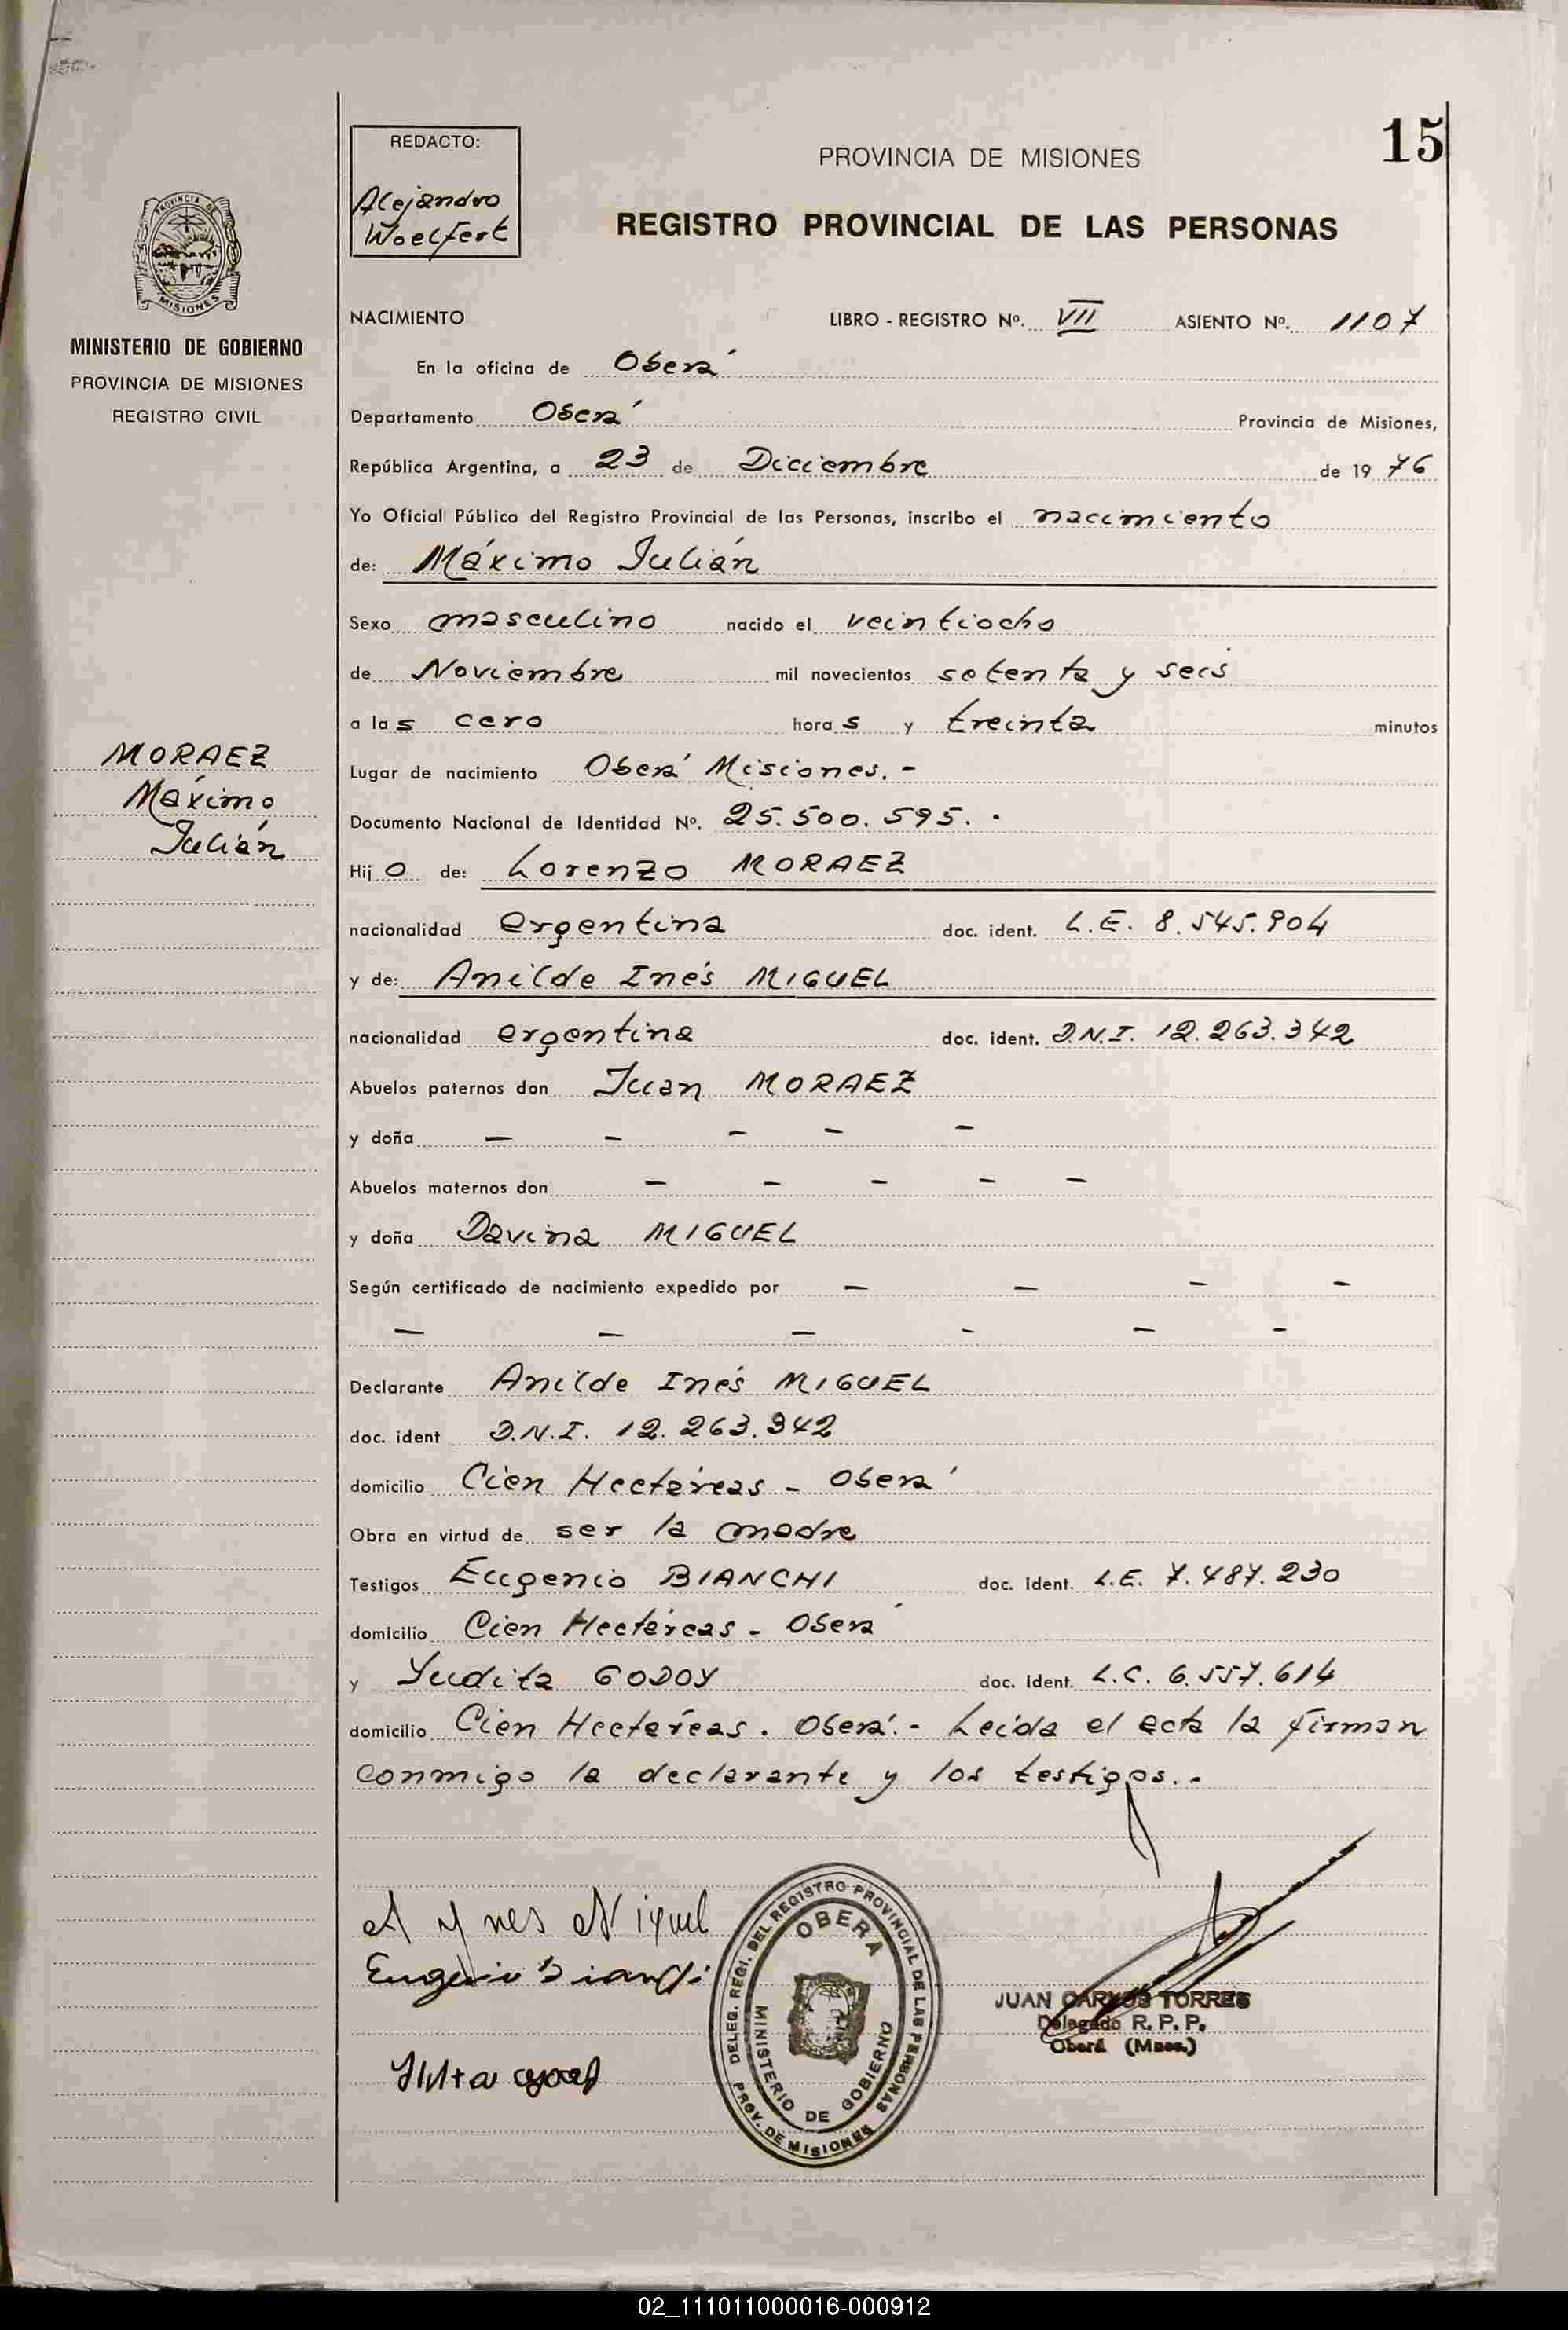 15
REDACTO:
Alejandro
Woelfert
PROVINCIA DE MISIONES
REGISTRO PROVINCIAL DE LAS PERSONAS
MISIONES
MINISTERIO DE GOBIERNO
PROVINCIA DE MISIONES
REGISTRO CIVIL
MORAEZ
Máximo
Julián
NACIMIENTO LIBRO - REGISTRO Nº. VII ASIENTO Nº. 1107
En la oficina de Oberá
Departamento Oberá Provincia de Misiones,
República Argentina, a 23 de Diciembre de 19 76
Yo Oficial Público del Registro Provincial de las Personas, inscribo el nacimiento
de: Máximo Julián
Sexo masculino nacido el veintiocho
de Noviembre mil novecientos setenta y seis
a las cero horas y treinta minutos
Lugar de nacimiento Oberá Misiones. -
Documento Nacional de Identidad Nº. 25.500.595. -
Hijo de: Lorenzo MORAEZ
nacionalidad argentina doc. ident. L.E. 8.545.904
y de: Anilde Inés MIGUEL
nacionalidad argentina doc. ident. D.N.I. 12.263.342
Abuelos paternos don Juan MORAEZ
y doña — — — — —
Abuelos maternos don — — — — —
y doña Davina MIGUEL
Según certificado de nacimiento expedido por — — — —
— — — — — —
Declarante Anilde Inés MIGUEL
doc. ident D.N.I. 12.263.342
domicilio Cien Hectáreas - Oberá
Obra en virtud de ser la madre
Testigos Eugenio BIANCHI doc. ident. L.E. 7.487.230
domicilio Cien Hectáreas - Oberá
y Yudita GODOY doc. ident. L.C. 6.557.614
domicilio Cien Hectáreas. Oberá. - Leída el acta la firman
conmigo la declarante y los testigos. -
A Ynes Miguel
Eugenio Bianchi
DELEG. REGI. DEL REGISTRO PROVINCIAL DE LAS PERSONAS
OBERA
MINISTERIO DE GOBIERNO
PROV. DE MISIONES
JUAN CARLOS TORRES
Delegado R. P. P.
Oberá (Mnes.)
02_111011000016-000912